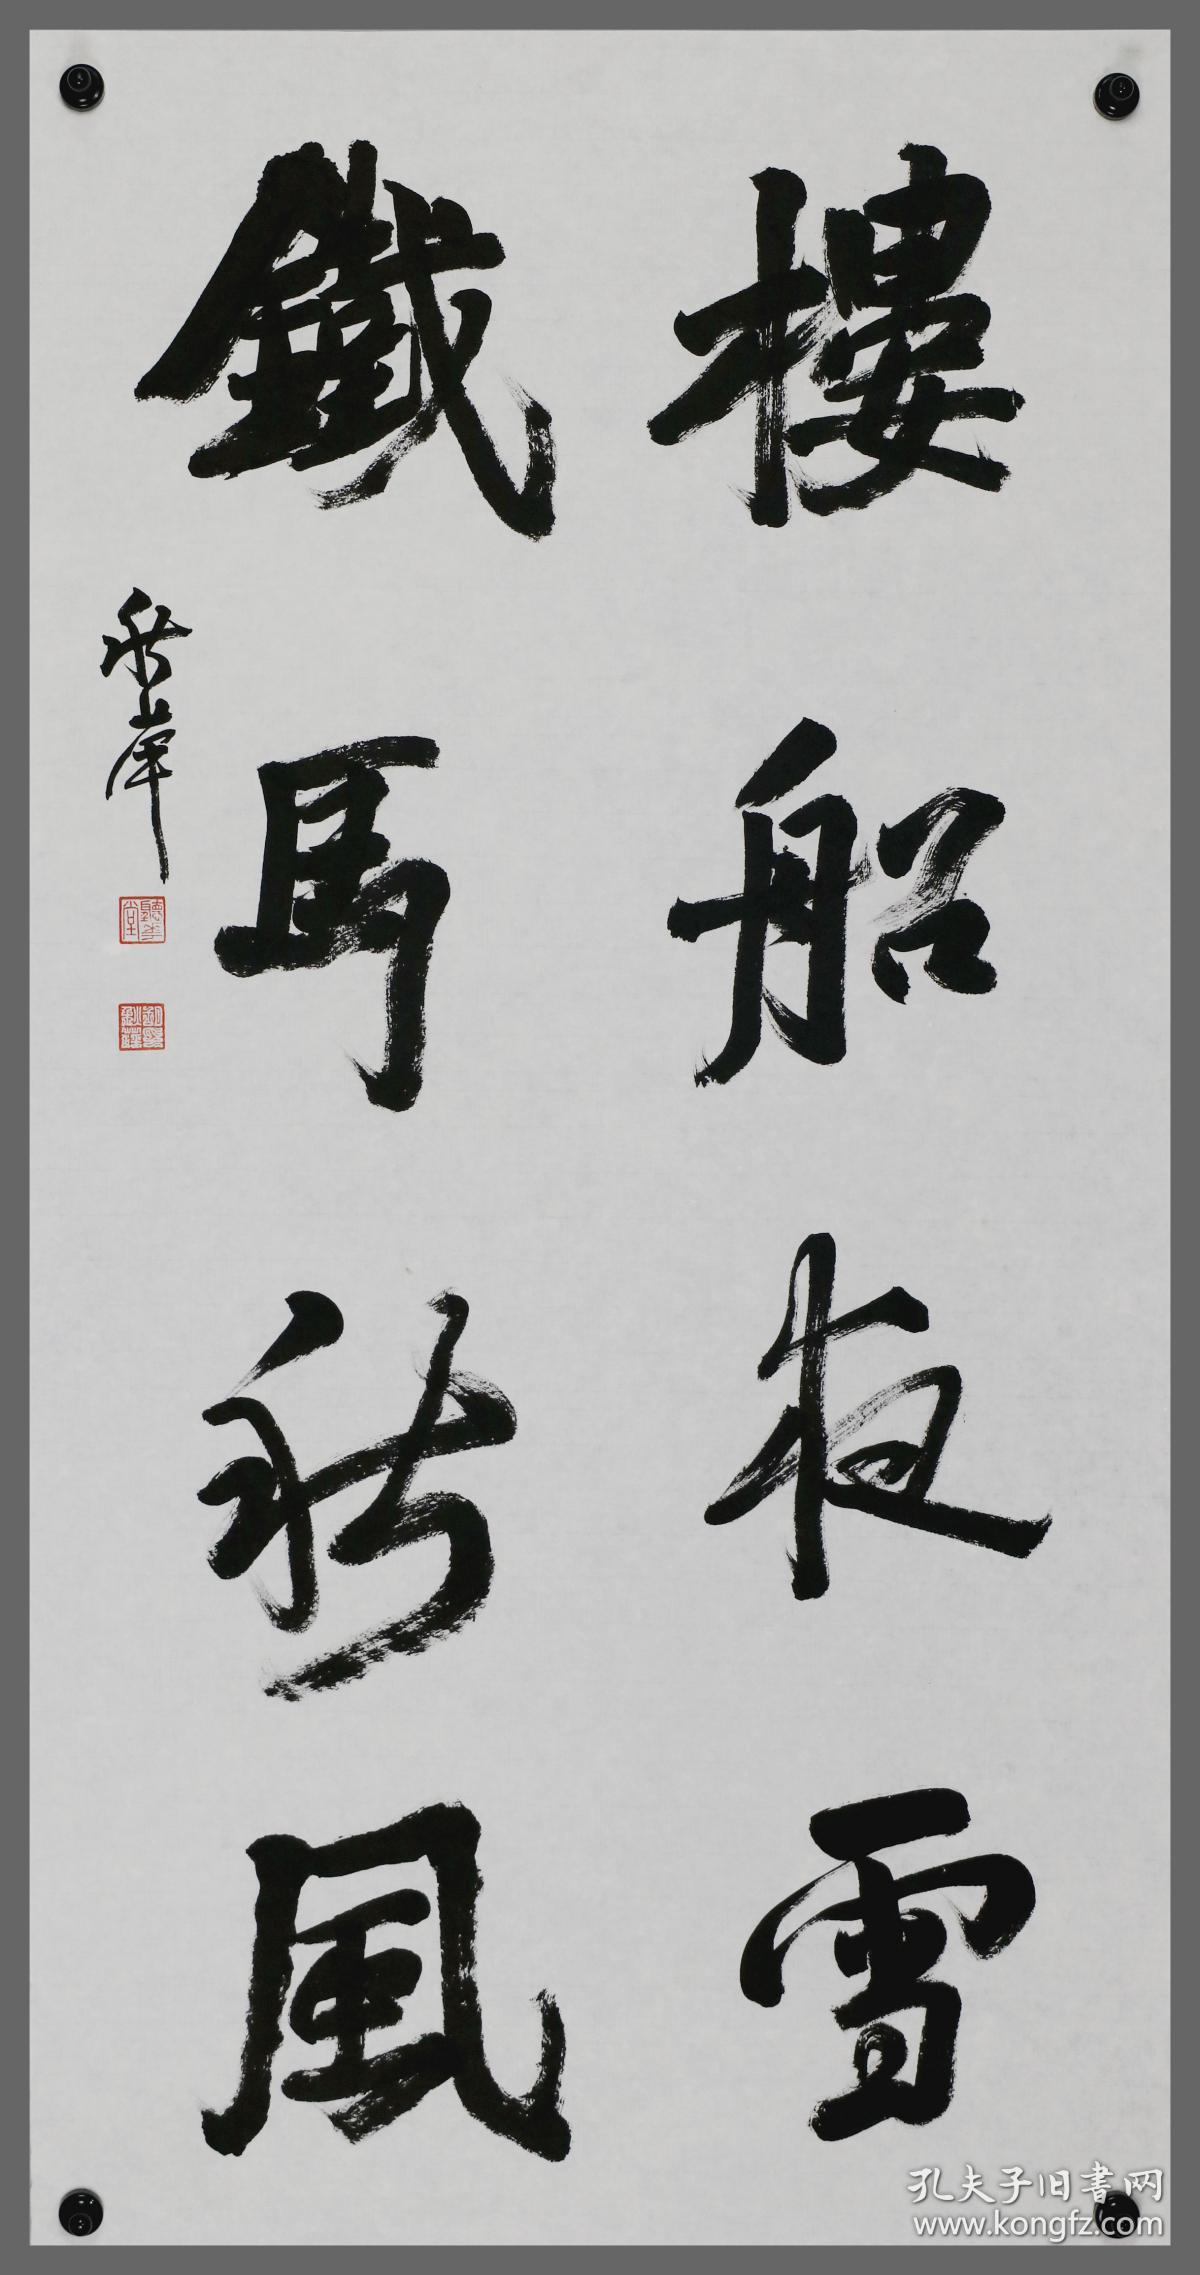 樓船夜雪
鐵馬秋風
秋岸
孔夫子旧书网
www.kongfz.com